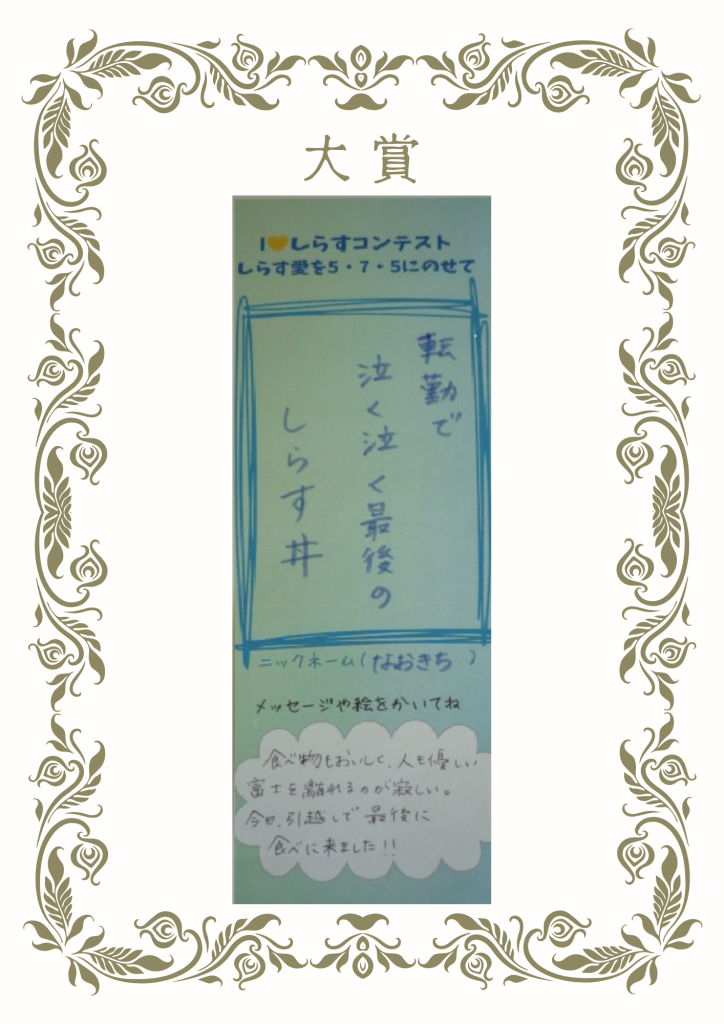 大賞
I🧡しらすコンテスト
しらす愛を5・7・5にのせて
転勤で
泣く泣く最後の
しらす丼
ニックネーム(なおきち)
メッセージや絵をかいてね
食べ物もおいしく、人も優しい
富士を離れるのが寂しい。
今日、引越しで最後に
食べに来ました!!